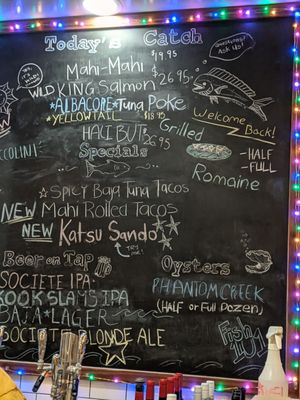 Today's Catch
Questions?
Ask Us!
Mahi-Mahi $19.95
WILD KING Salmon $26.95
*ALBACORE *Tuna Poke
*YELLOWTAIL $18.95
Welcome
Back!
HALIBUT 26.95
Grilled
Romaine
-HALF
-FULL
Specials
COLINI
Spicy Baja Tuna Tacos
NEW Mahi Rolled Tacos
NEW Katsu Sando
TRY ME!
Beer on Tap
SOCIETE IPA
KOOK SLAMS IPA
BAJA*LAGER
SOCIETE BLONDE ALE
Oysters
PHANTOM CREEK
(HALF or Full Dozen)
Fish
101